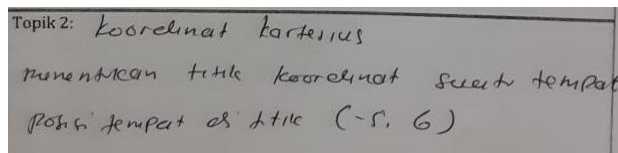 Topik 2: koordinat kartesius
menentukan titik koordinat suatu tempat
posisi tempat di titik (-5, 6)